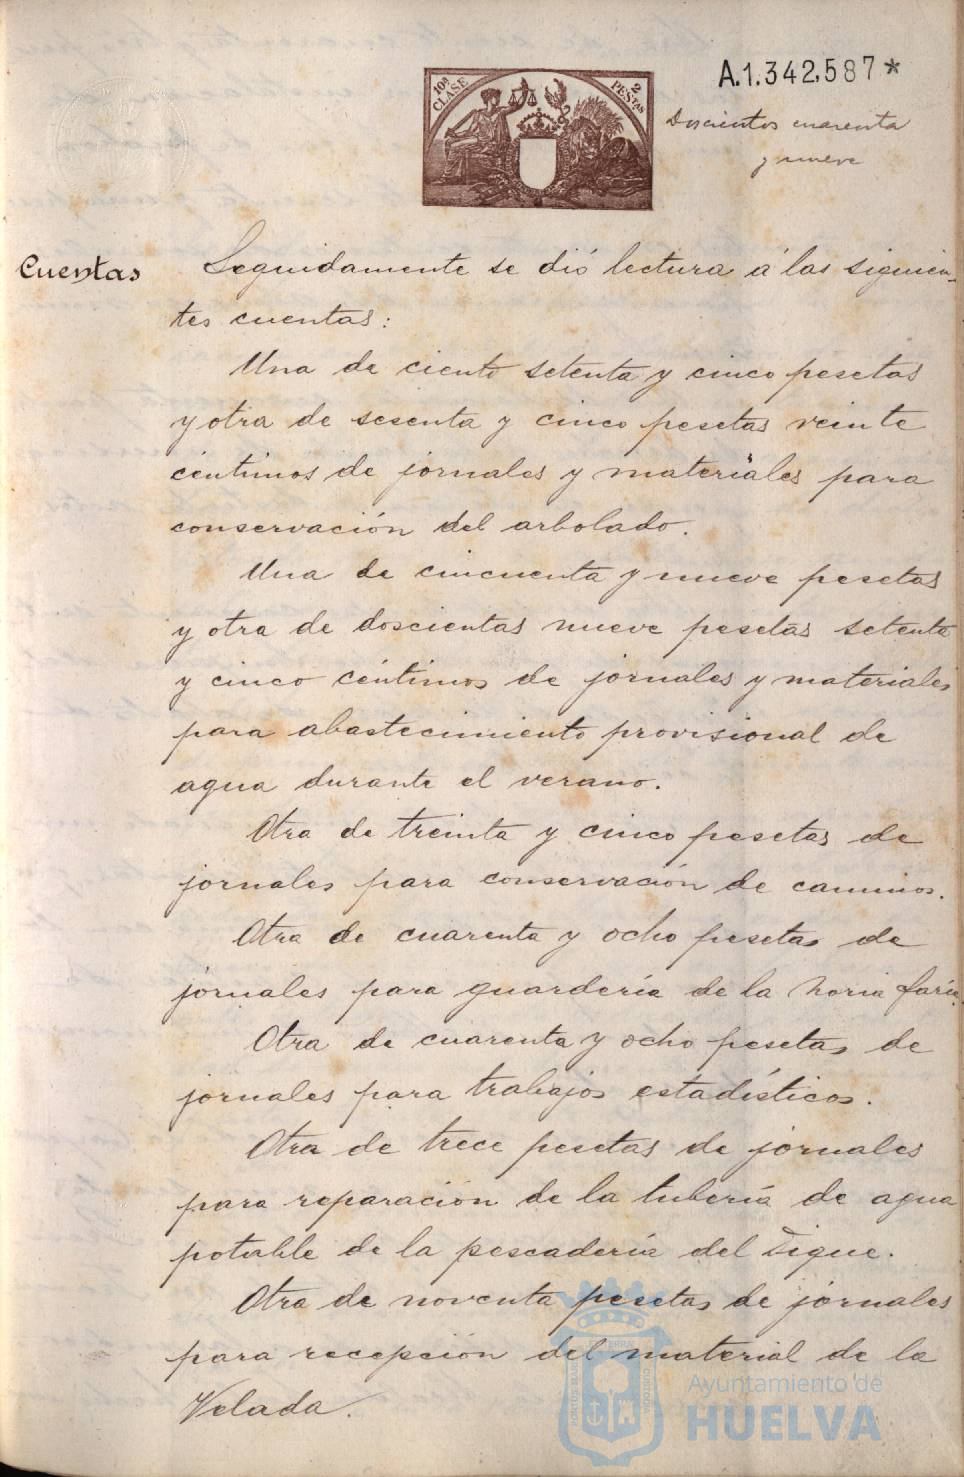 10ª CLASE
2 PESTAS
A.1.342.587*
Doscientos cuarenta
y nueve
Cuentas
Seguidamente se dió lectura á las siguien-
tes cuentas:
Una de ciento setenta y cinco pesetas
y otra de sesenta y cinco pesetas veinte
céntimos de jornales y materiales para
conservación del arbolado.
Una de cincuenta y nueve pesetas
y otra de doscientas nueve pesetas setenta
y cinco céntimos de jornales y materiales
para abastecimiento provisional de
agua durante el verano.
Otra de treinta y cinco pesetas de
jornales para conservación de caminos.
Otra de cuarenta y ocho pesetas de
jornales para guardería de la noria
Otra de cuarenta y ocho pesetas de
jornales para trabajos estadísticos.
Otra de trece pesetas de jornales
para reparación de la tubería de agua
potable de la pescadería del Dique.
Otra de noventa pesetas de jornales
para recepción del material de la
Velada.
Ayuntamiento de
HUELVA